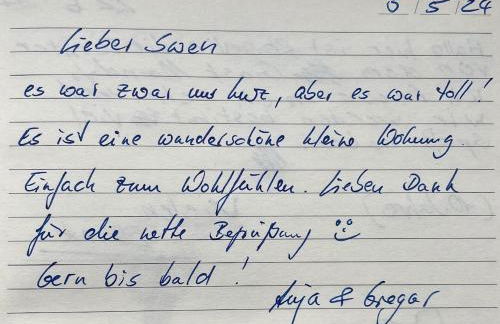 6/5/24
Lieber Swen
es war zwar nur kurz, aber es war toll!
Es ist eine wunderschöne kleine Wohnung.
Einfach zum Wohlfühlen. Lieben Dank
für die nette Begrüßung
Gern bis bald!
Anja & Gregor